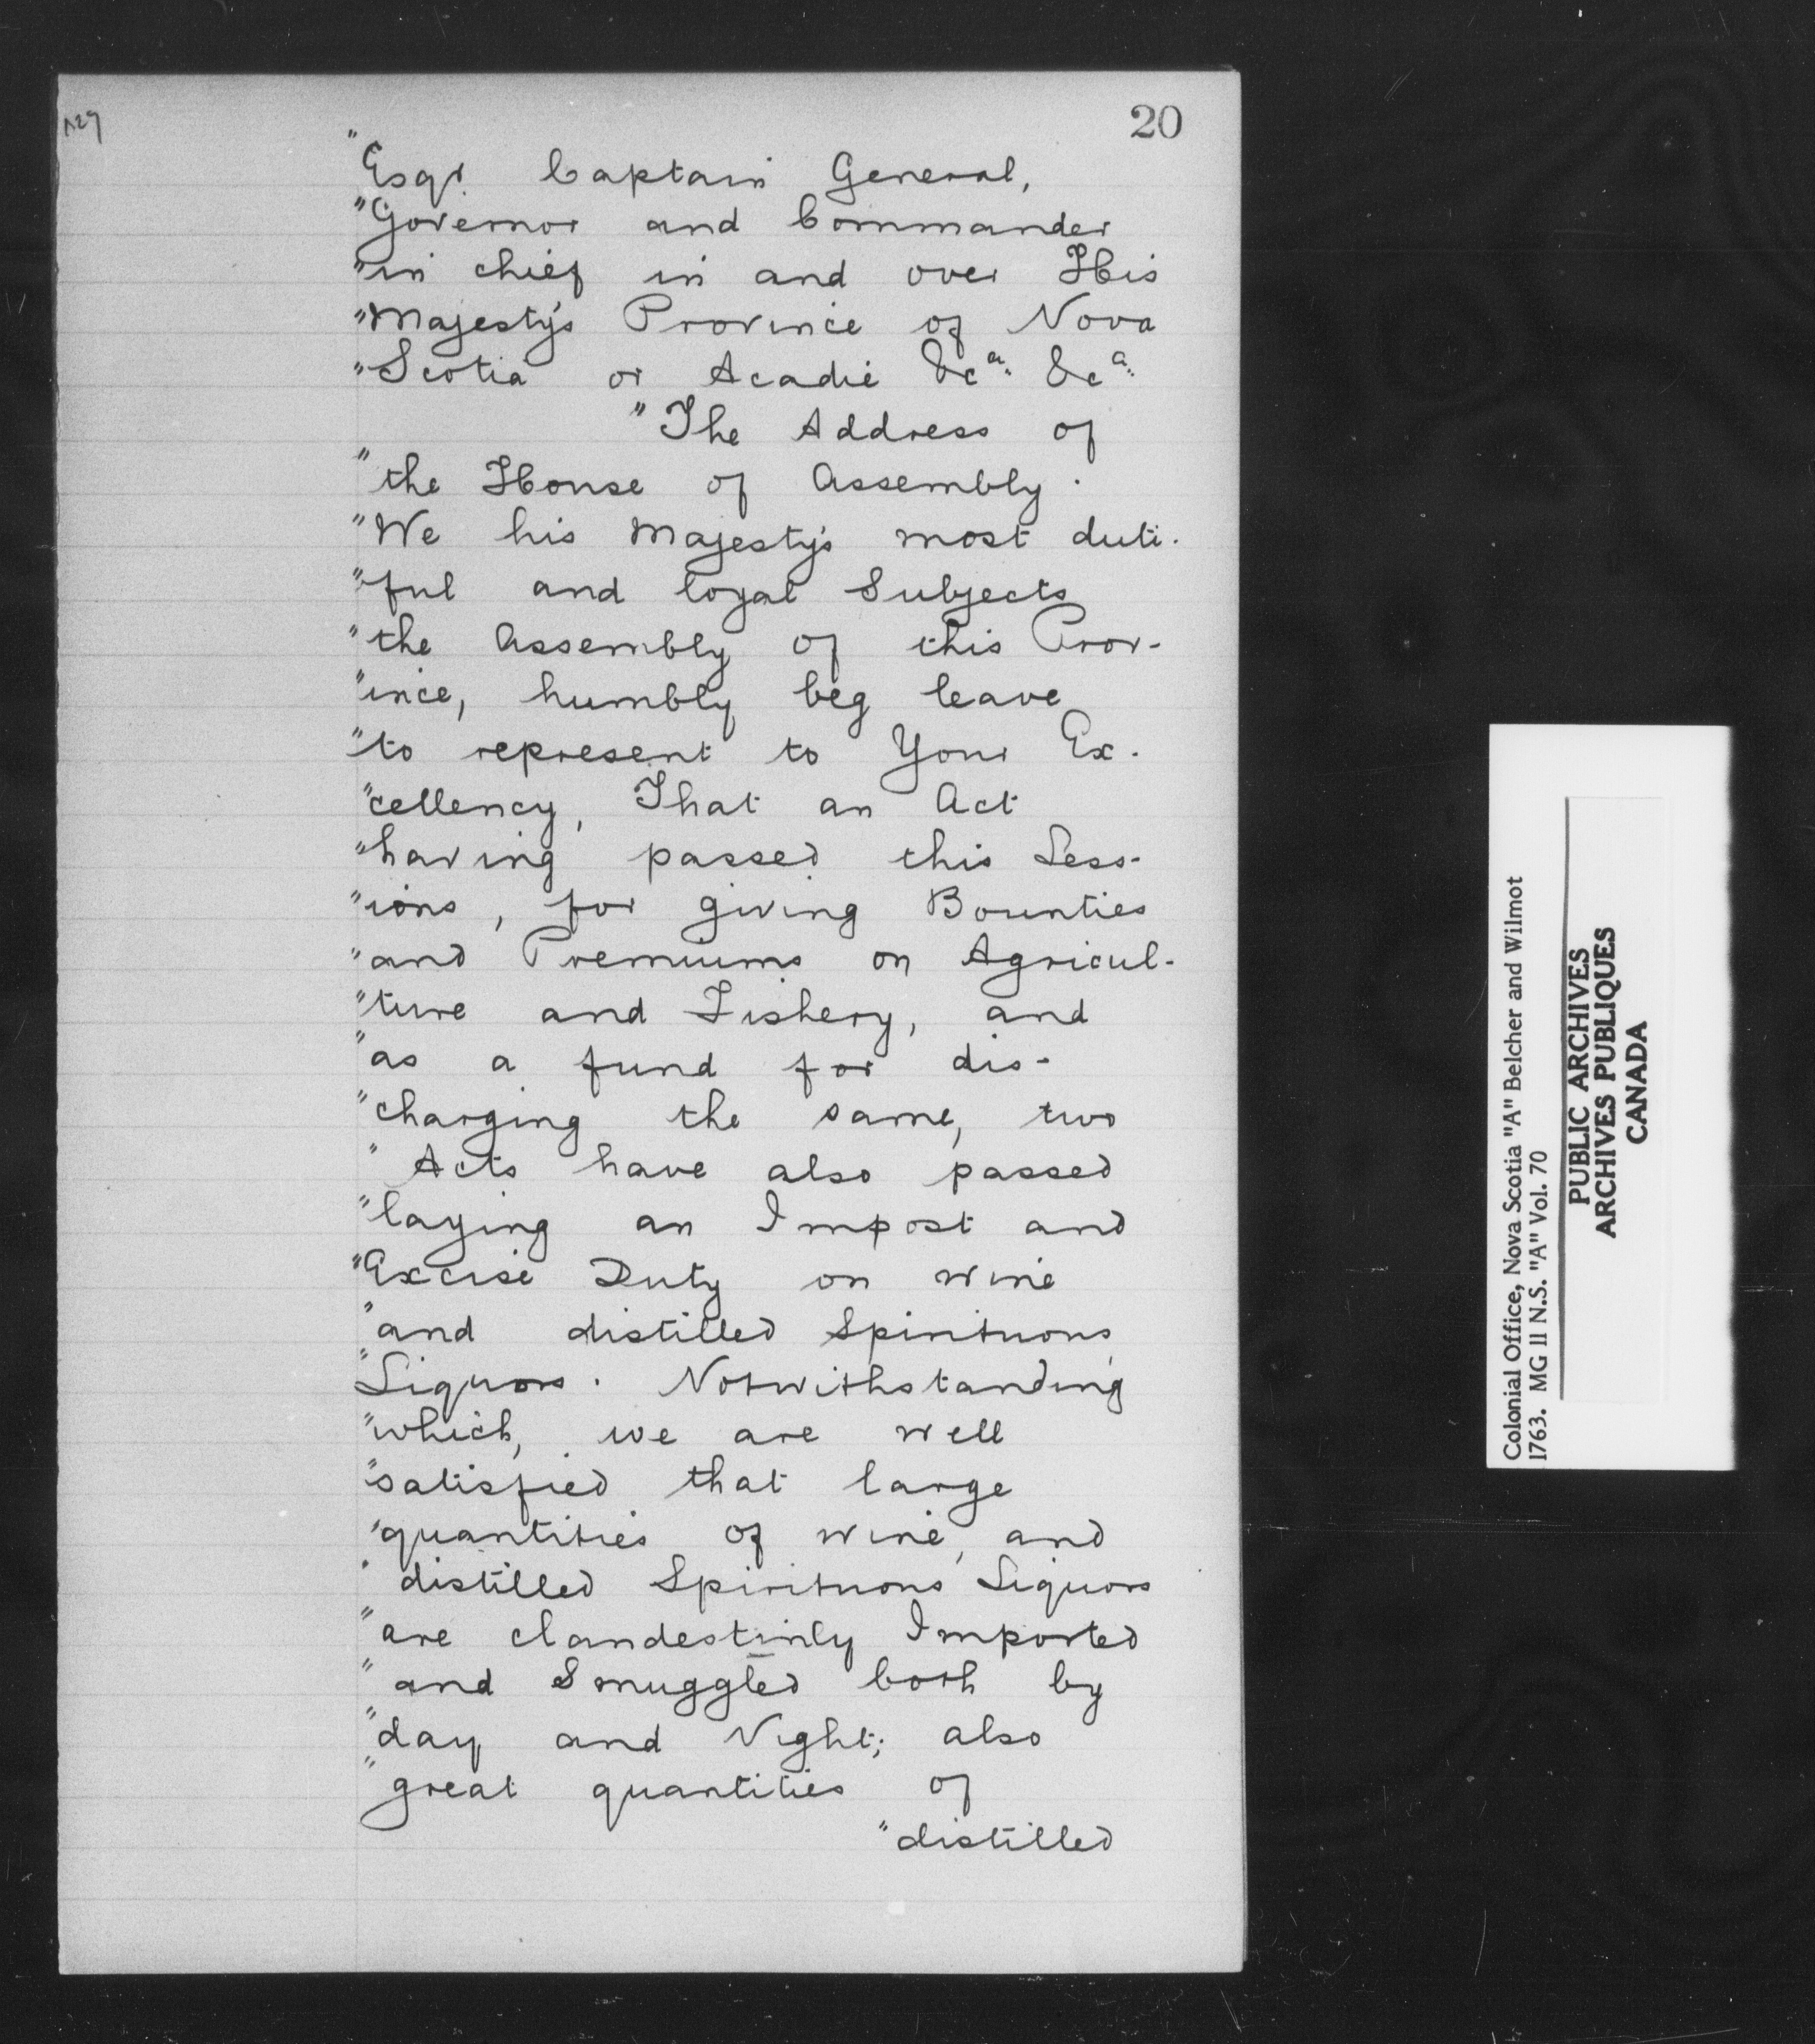 20
"Esqr. Captain General,
"Governor and Commander
"in chief in and over His
"Majesty's Province of Nova
"Scotia or Acadie &ca. &ca.
"The Address of
"the House of Assembly.
"We his Majesty's most duti-
"ful and loyal Subjects
"the Assembly of this Prov-
"ince, humbly beg leave
"to represent to Your Ex-
"cellency, That an Act
"having passed this Sess-
"ions, for giving Bounties
"and Premiums on Agricul-
"ture and Fishery, and
"as a fund for dis-
"charging the same, two
"Acts have also passed
"laying an Impost and
"Excise Duty on wine
"and distilled Spirituous
"Liquors. Notwithstanding
"which, we are well
"satisfied that large
"quantities of wine, and
"distilled Spirituous Liquors
"are clandestinly Imported
"and Smuggled both by
"day and Night; also
"great quantities of
"distilled
Colonial Office, Nova Scotia "A" Belcher and Wilmot
1763. MG 11 N.S. "A" Vol. 70
PUBLIC ARCHIVES
ARCHIVES PUBLIQUES
CANADA